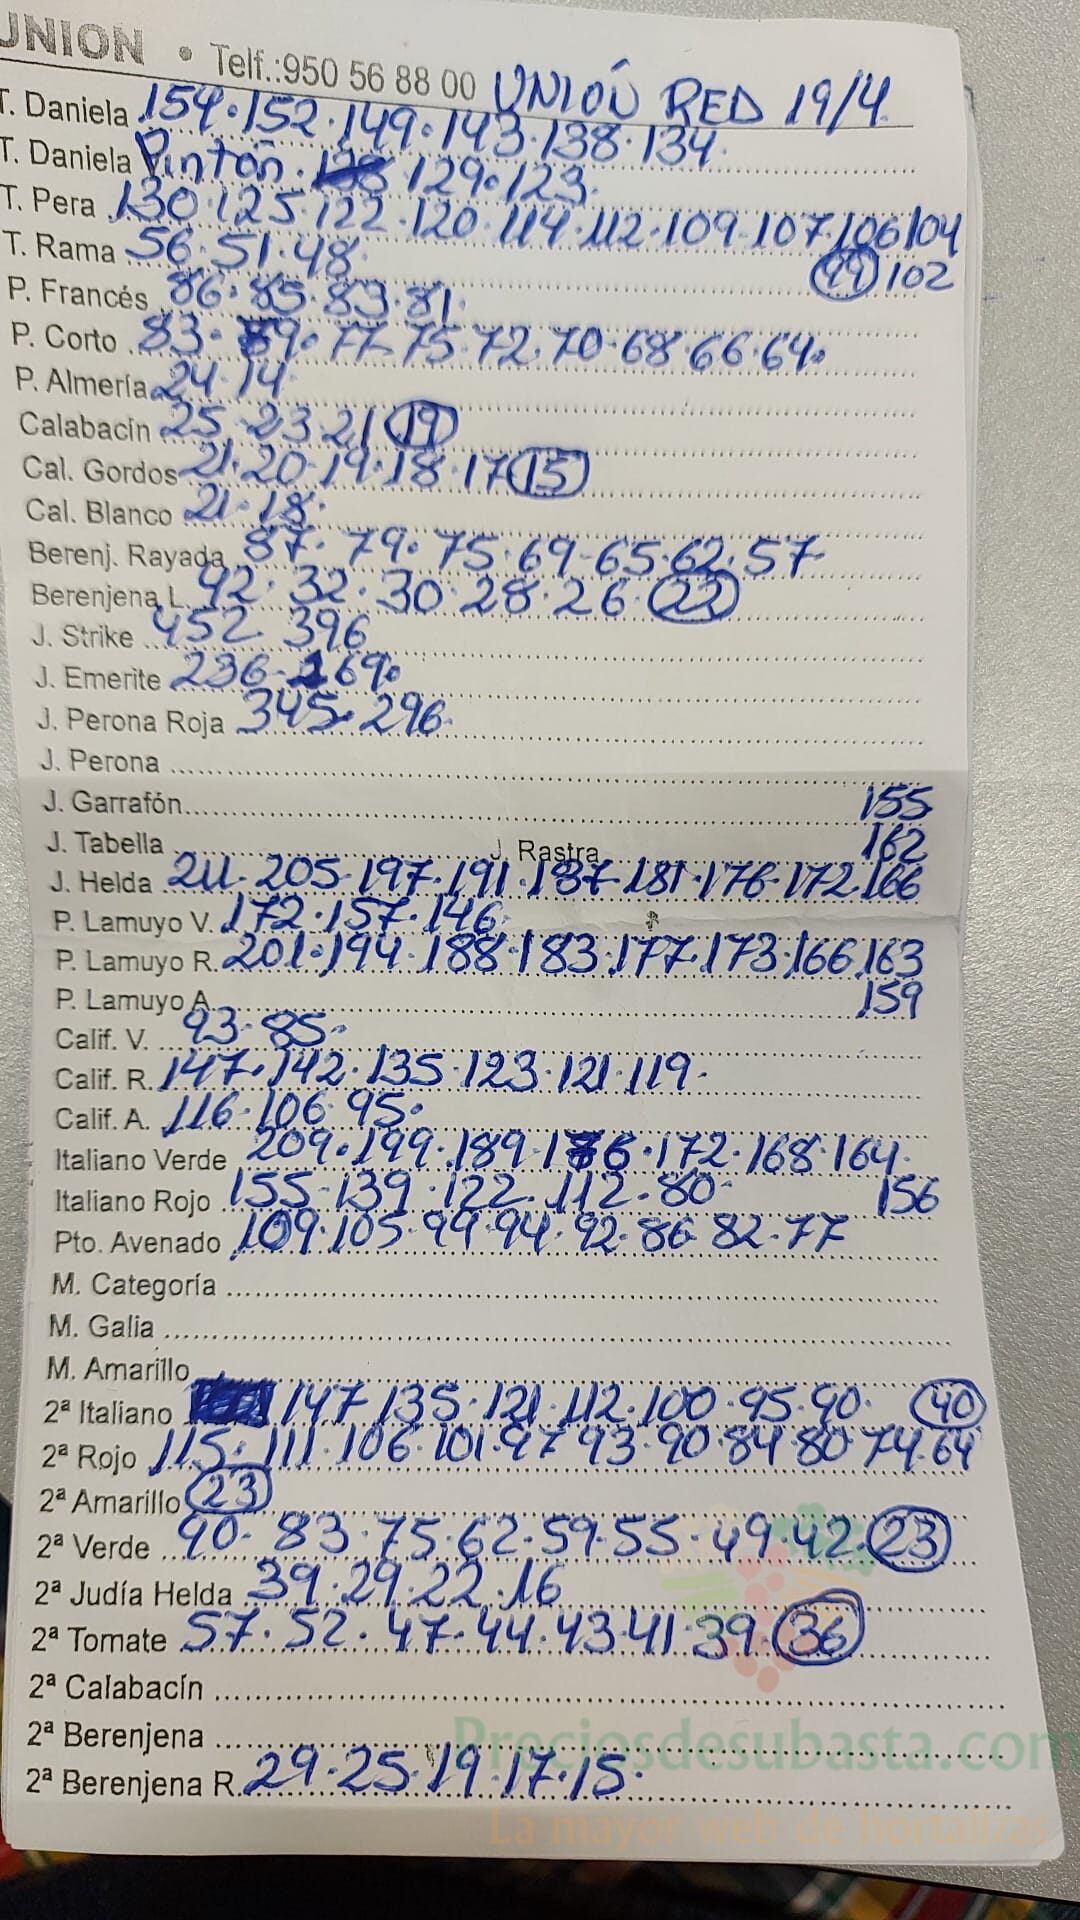 UNION • Telf.:950 56 88 00 UNIÓN RED 19/4
T. Daniela 154·152·149·143·138·134·
T. Daniela Pintón · 129·123·
T. Pera 130·125·122·120·114·112·109·107·106 104
T. Rama 56·51·48· 99 102
P. Francés 86·85·83·81·
P. Corto 83·79·77·75·72·70·68·66·64·
P. Almería 24·14·
Calabacín 25·23·21 19
Cal. Gordos 21·20·19·18·17 15
Cal. Blanco 21·18·
Berenj. Rayada 87·79·75·69·65·62·57
Berenjena L. 42·32·30·28·26· 22
J. Strike 452·396
J. Emerite 236·169·
J. Perona Roja 345·296·
J. Perona
J. Garrafón 155
J. Tabella J. Rastra 162
J. Helda 211·205·197·191·187·181·176·172·166
P. Lamuyo V. 172·157·146·
P. Lamuyo R. 201·194·188·183·177·173·166 163
P. Lamuyo A. 159
Calif. V. 93·85·
Calif. R. 147·142·135·123·121·119·
Calif. A. 116·106·95·
Italiano Verde 209·199·189·176·172·168·164·
Italiano Rojo 155·139·122·112·80· 156
Pto. Avenado 109·105·99·94·92·86·82·77
M. Categoría
M. Galia
M. Amarillo
2ª Italiano 147·135·121·112·100·95·90· 40
2ª Rojo 115·111·106·101·97·93·90·84·80·74·64
2ª Amarillo 23
2ª Verde 90·83·75·62·59·55·49·42· 23
2ª Judía Helda 39·29·22·16
2ª Tomate 57·52·47·44·43·41·39· 36
2ª Calabacín
2ª Berenjena
2ª Berenjena R. 29·25·19·17·15·
Preciosdesubasta.com
La mayor web de hortalizas